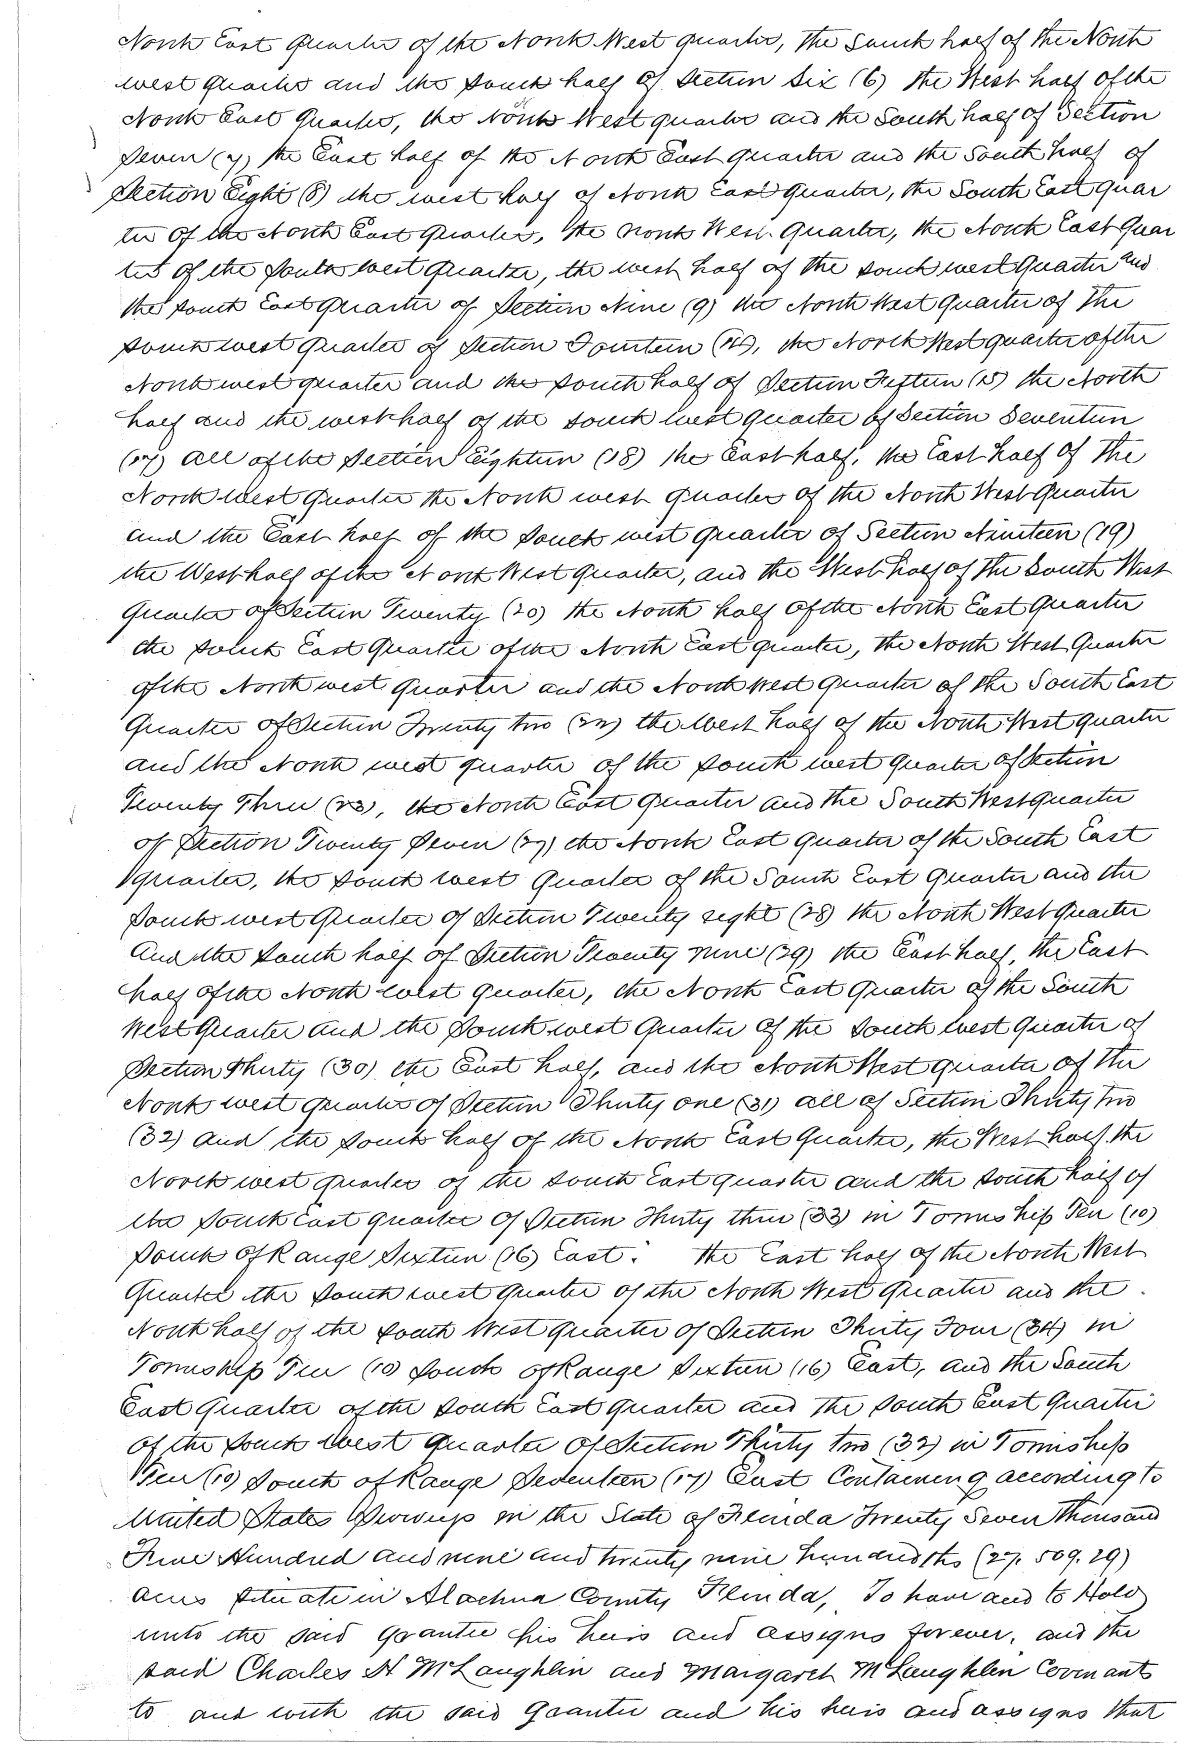 North East quarter of the North West quarter, the South half of the North
west quarter and the South half of Section Six (6) the West half of the
North East Quarter, the North West quarter and the South half of Section
Seven (7) the East half of the North East quarter and the South half of
Section Eight (8) the west half of North East quarter, the South East quar
ter of the North East Quarter, the North West Quarter, the North East Quar
ter of the South west Quarter, the west half of the south west Quarter and
the South East Quarter of Section Nine (9) the North West Quarter of the
South west Quarter of Section Fourteen (14), the North West quarter of the
North west quarter and the South half of Section Fifteen (15) the North
half and the west half of the South West quarter of Section Seventeen
(17) all of the Section Eighteen (18) the East half, the East half of the
North West Quarter the North west quarter of the North West Quarter
and the East half of the South west quarter of Section Nineteen (19)
the West half of the North West Quarter, and the West half of the South West
Quarter of Section Twenty (20) the North half of the North East Quarter
the South East Quarter of the North East quarter, the North West Quarter
of the North west quarter and the North West Quarter of the South East
Quarter of Section Twenty two (22) the West half of the North West quarter
and the North west quarter of the South west quarter of Section
Twenty Three (23), the North East Quarter and the South West quarter
of Section Twenty Seven (27) the North East quarter of the South East
quarter, the South west Quarter of the South East Quarter and the
South west Quarter of Section Twenty eight (28) the North West Quarter
And the South half of Section Twenty nine (29) the East half, the East
half of the North West quarter, the North East Quarter of the South
West Quarter and the South west Quarter of the South West Quarter of
Section Thirty (30) the East half, and the North West quarter of the
North west quarter of Section Thirty one (31) all of Section Thirty two
(32) and the South half of the North East Quarter, the West half, the
North west quarter of the South East quarter and the South half of
the South East quarter of Section Thirty three (33) in Township Ten (10)
South of Range Sixteen (16) East. the East half of the North West
Quarter the South west quarter of the North West Quarter and the
North half of the South West Quarter of Section Thirty Four (34) in
Township Ten (10) South of Range Sixteen (16) East, and the South
East Quarter of the South East quarter and the South East quarter
of the South West Quarter of Section Thirty two (32) in Township
Ten (10) South of Range Seventeen (17) East Containing according to
United States Surveys in the State of Florida Twenty Seven Thousand
Five Hundred and nine and twenty nine hundredths (27.509.29)
acres situate in Alachua County Florida, To have and to Hold
unto the said Grantee his heirs and assigns forever, and the
said Charles H McLaughlin and Margaret McLaughlin Covenants
to and with the said Grantee and his heirs and assigns that